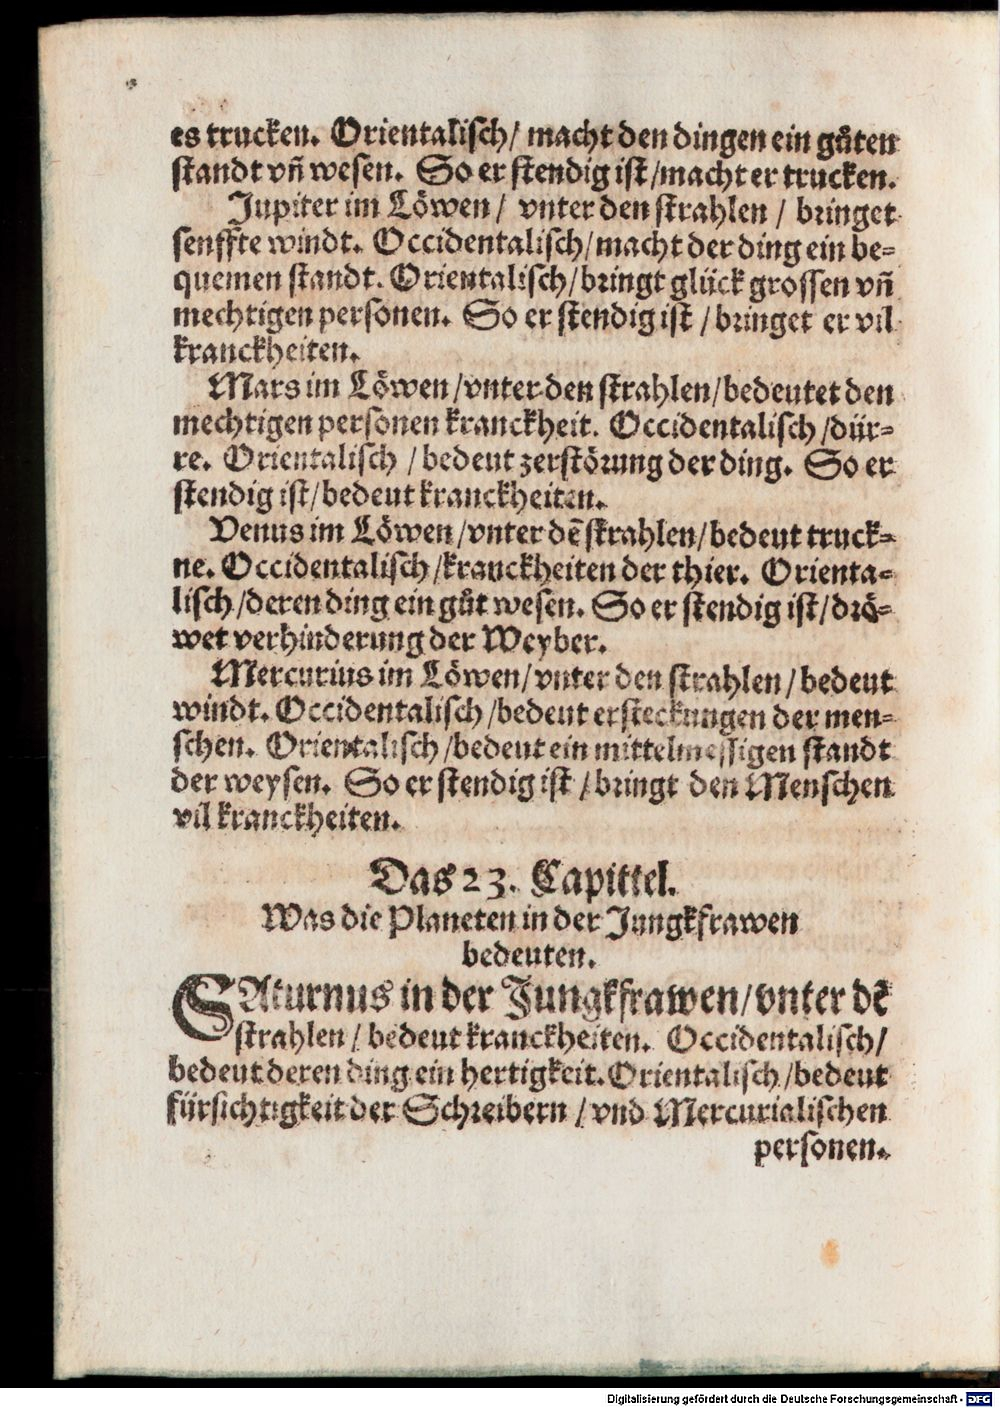 es trucken. Orientalisch/ macht den dingen ein gůten
standt vñ wesen. So er stendig ist/macht er trucken.
Jupiter im Löwen/ vnter den strahlen/ bringet
senffte windt. Occidentalisch/macht der ding ein be=
quemen standt. Orientalisch/bringt glück grossen vñ
mechtigen personen. So er stendig ist/bringet er vil
kranckheiten.
Mars im Löwen/vnter den strahlen/bedeutet den
mechtigen personen kranckheit. Occidentalisch/dür=
re. Orientalisch/bedeut zerstörung der ding. So er
stendig ist/bedeut kranckheiten.
Venus im Löwen/vnter dē strahlen/bedeut truck=
ne. Occidentalisch/kranckheiten der thier. Orienta=
lisch/deren ding ein gůt wesen. So er stendig ist/drö=
wet verhinderung der Weyber.
Mercurius im Löwen/vnter den strahlen/bedeut
windt. Occidentalisch/bedeut ersteckungen der men=
schen. Orientalisch/bedeut ein mittelmessigen standt
der weysen. So er stendig ist/bringt den Menschen
vil kranckheiten.
Das 23. Capittel.
Was die Planeten in der Jungkfrawen
bedeuten.
SAturnus in der Jungkfrawen/vnter dē
strahlen/bedeut kranckheiten. Occidentalisch/
bedeut deren ding ein hertigkeit. Orientalisch/bedeut
fürsichtigkeit der Schreibern/vnd Mercurialischen
personen.
Digitalisierung gefördert durch die Deutsche Forschungsgemeinschaft - DFG